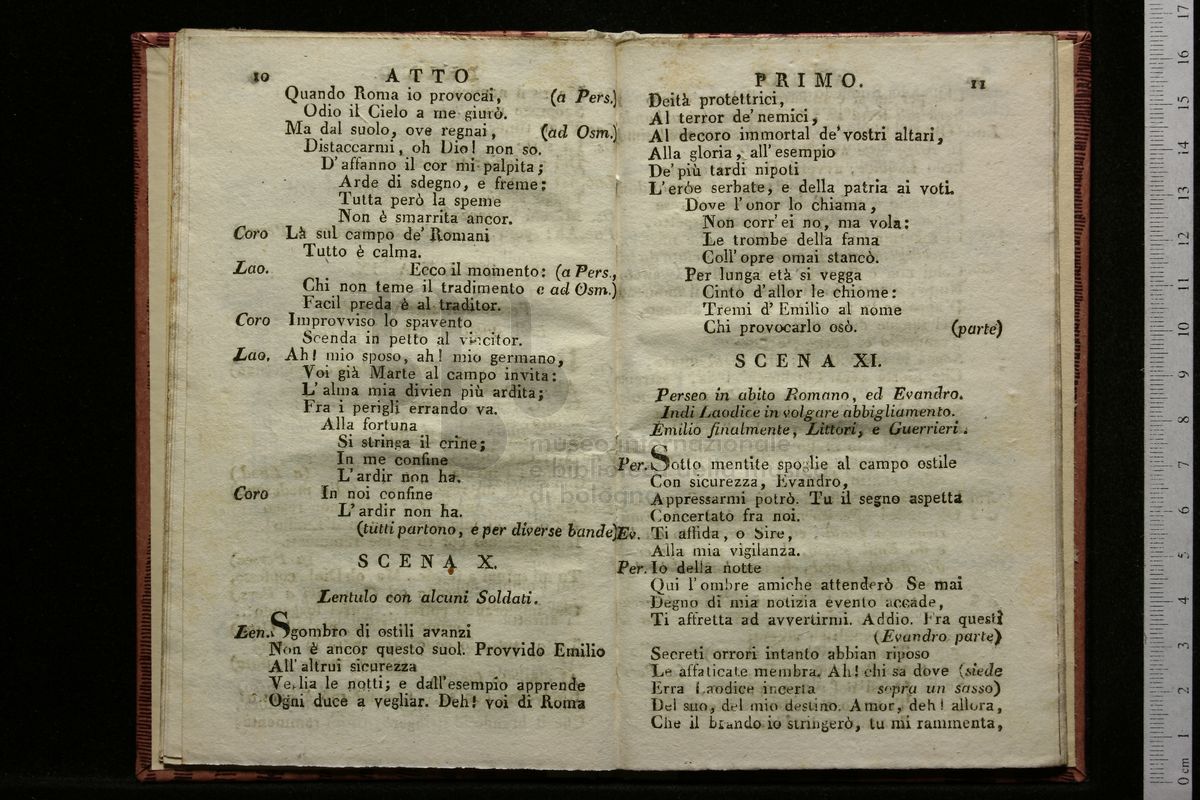 10 ATTO
Quando Roma io provocai, (a Pers.)
Odio il Cielo a me giurò.
Ma dal suolo, ove regnai, (ad Osm.)
Distaccarmi, oh Dio! non so.
D'affanno il cor mi palpita;
Arde di sdegno, e freme:
Tutta però la speme
Non è smarrita ancor.
Coro Là sul campo de' Romani
Tutto è calma.
Lao. Ecco il momento: (a Pers.,
Chi non teme il tradimento e ad Osm.)
Facil preda è al traditor.
Coro Improvviso lo spavento
Scenda in petto al vincitor.
Lao. Ah! mio sposo, ah! mio germano,
Voi già Marte al campo invita:
L'alma mia divien più ardita;
Fra i perigli errando va.
Alla fortuna
Si stringa il crine;
In me confine
L'ardir non ha.
Coro In noi confine
L'ardir non ha.
(tutti partono, e per diverse bande)
SCENA X.
Lentulo con alcuni Soldati.
Len. Sgombro di ostili avanzi
Non è ancor questo suol. Provvido Emilio
All'altrui sicurezza
Veglia le notti; e dall'esempio apprende
Ogni duce a vegliar. Deh! voi di Roma
PRIMO. 11
Deità protettrici,
Al terror de' nemici,
Al decoro immortal de' vostri altari,
Alla gloria, all'esempio
De' più tardi nipoti
L'eroe serbate, e della patria ai voti.
Dove l'onor lo chiama,
Non corr'ei no, ma vola:
Le trombe della fama
Coll'opre omai stancò.
Per lunga età si vegga
Cinto d'allor le chiome:
Tremi d'Emilio al nome
Chi provocarlo osò. (parte)
SCENA XI.
Perseo in abito Romano, ed Evandro.
Indi Laodice in volgare abbigliamento.
Emilio finalmente, Littori, e Guerrieri.
Per. Sotto mentite spoglie al campo ostile
Con sicurezza, Evandro,
Appressarmi potrò. Tu il segno aspetta
Concertato fra noi.
Ev. Ti affida, o Sire,
Alla mia vigilanza.
Per. Io della notte
Qui l'ombre amiche attenderò Se mai
Degno di mia notizia evento accade,
Ti affretta ad avvertirmi. Addio. Fra questi
(Evandro parte)
Secreti orrori intanto abbian riposo
Le affaticate membra. Ah! chi sa dove (siede
Erra Laodice incerta sopra un sasso)
Del suo, del mio destino. Amor, deh! allora,
Che il brando io stringerò, tu mi rammenta,